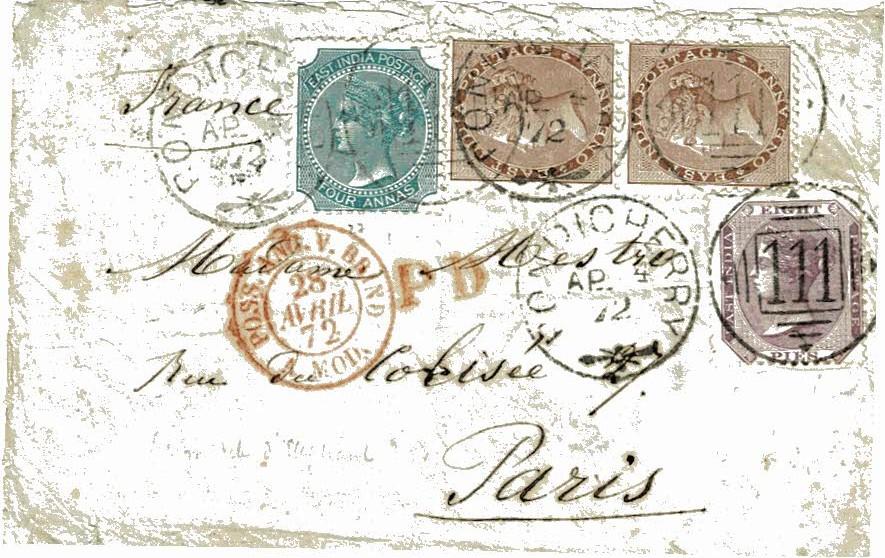 France
PONDICH
AP.
72
EAST INDIA POSTAGE
FOUR ANNAS
PON
AP
72
EAST INDIA POSTAGE
ONE ANNA
EAST INDIA POSTAGE
ONE ANNA
Madame Mestro
POSS. ANG. V. BRIND
28
AVRIL
72
A MOD.
PD
PONDICHERRY
AP. 4
72
EIGHT
EAST INDIA
POSTAGE
PIES
111
Rue du Colisée
Paris